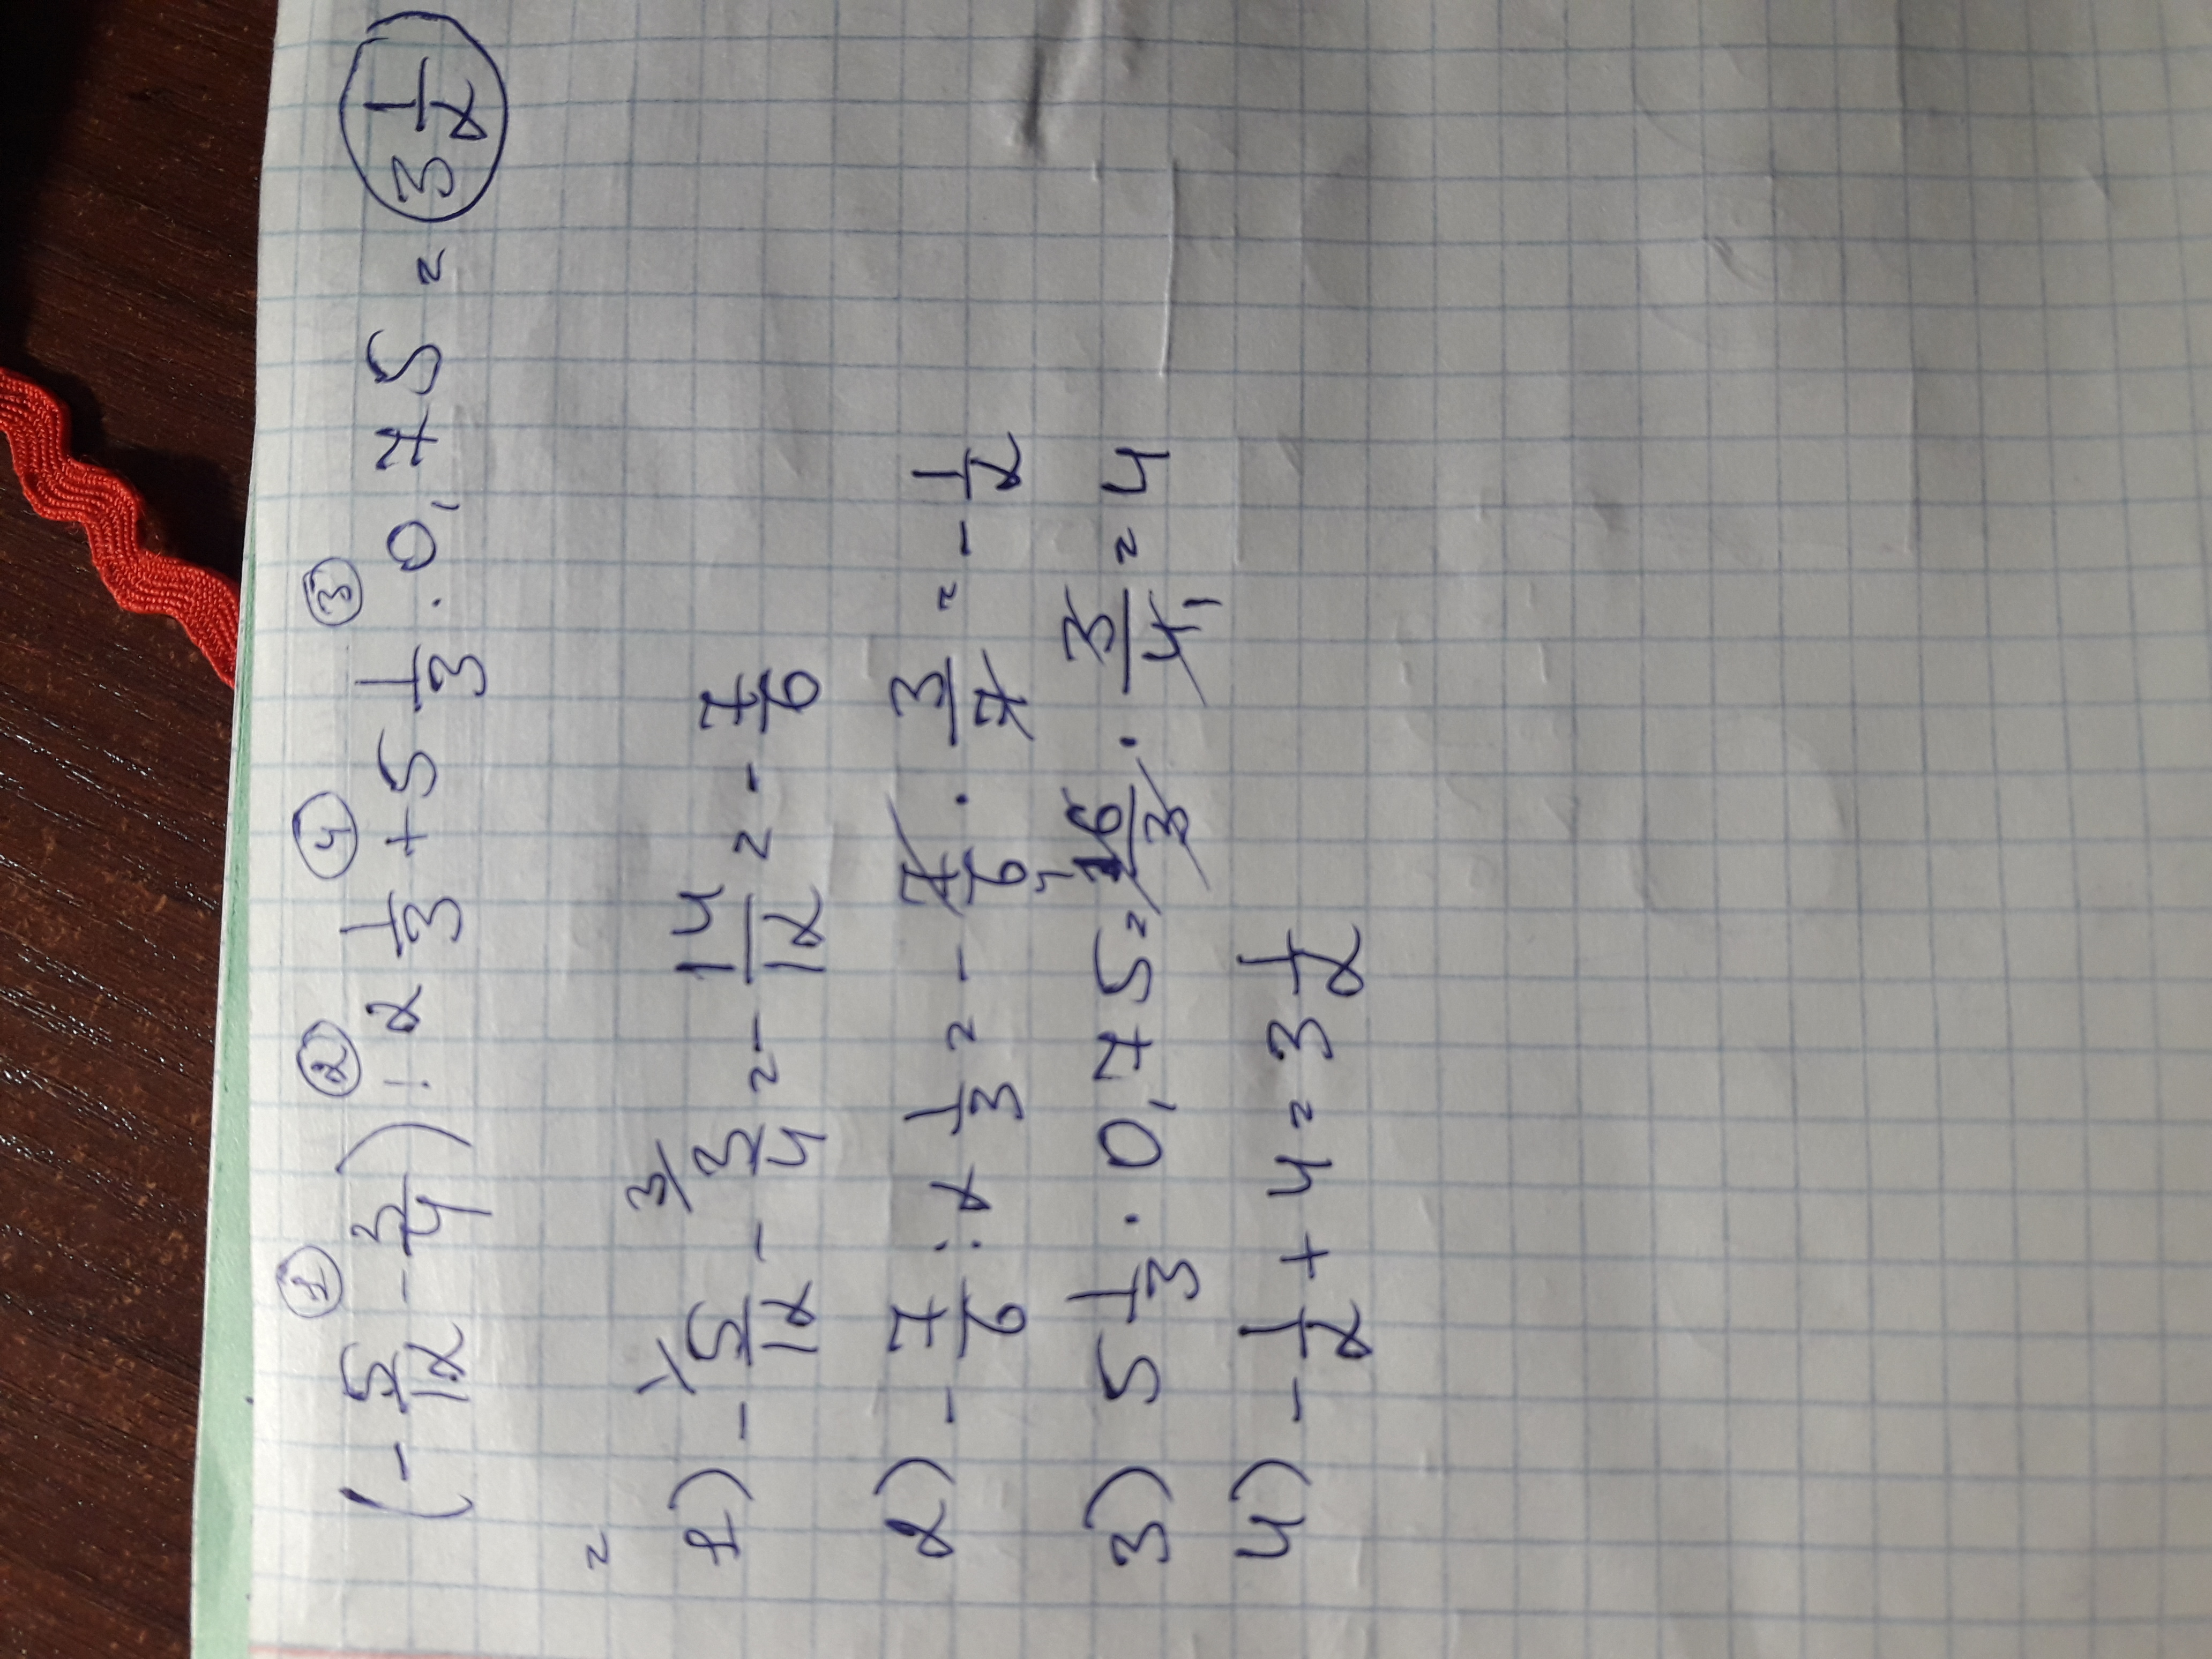 ① ② ④ ③
(- 5/12 - 3/4) : 2 1/3 + 5 1/3 · 0,75 = 3 1/2
=
1) - 5/12 \1 - 3/4 \3 = - 14/12 = - 7/6
2) - 7/6 : 2 1/3 = - 7/6 · 3/7 = - 1/2
3) 5 1/3 · 0,75 = 16/3 4 · 3/4 1 = 4
4) - 1/2 + 4 = 3 1/2